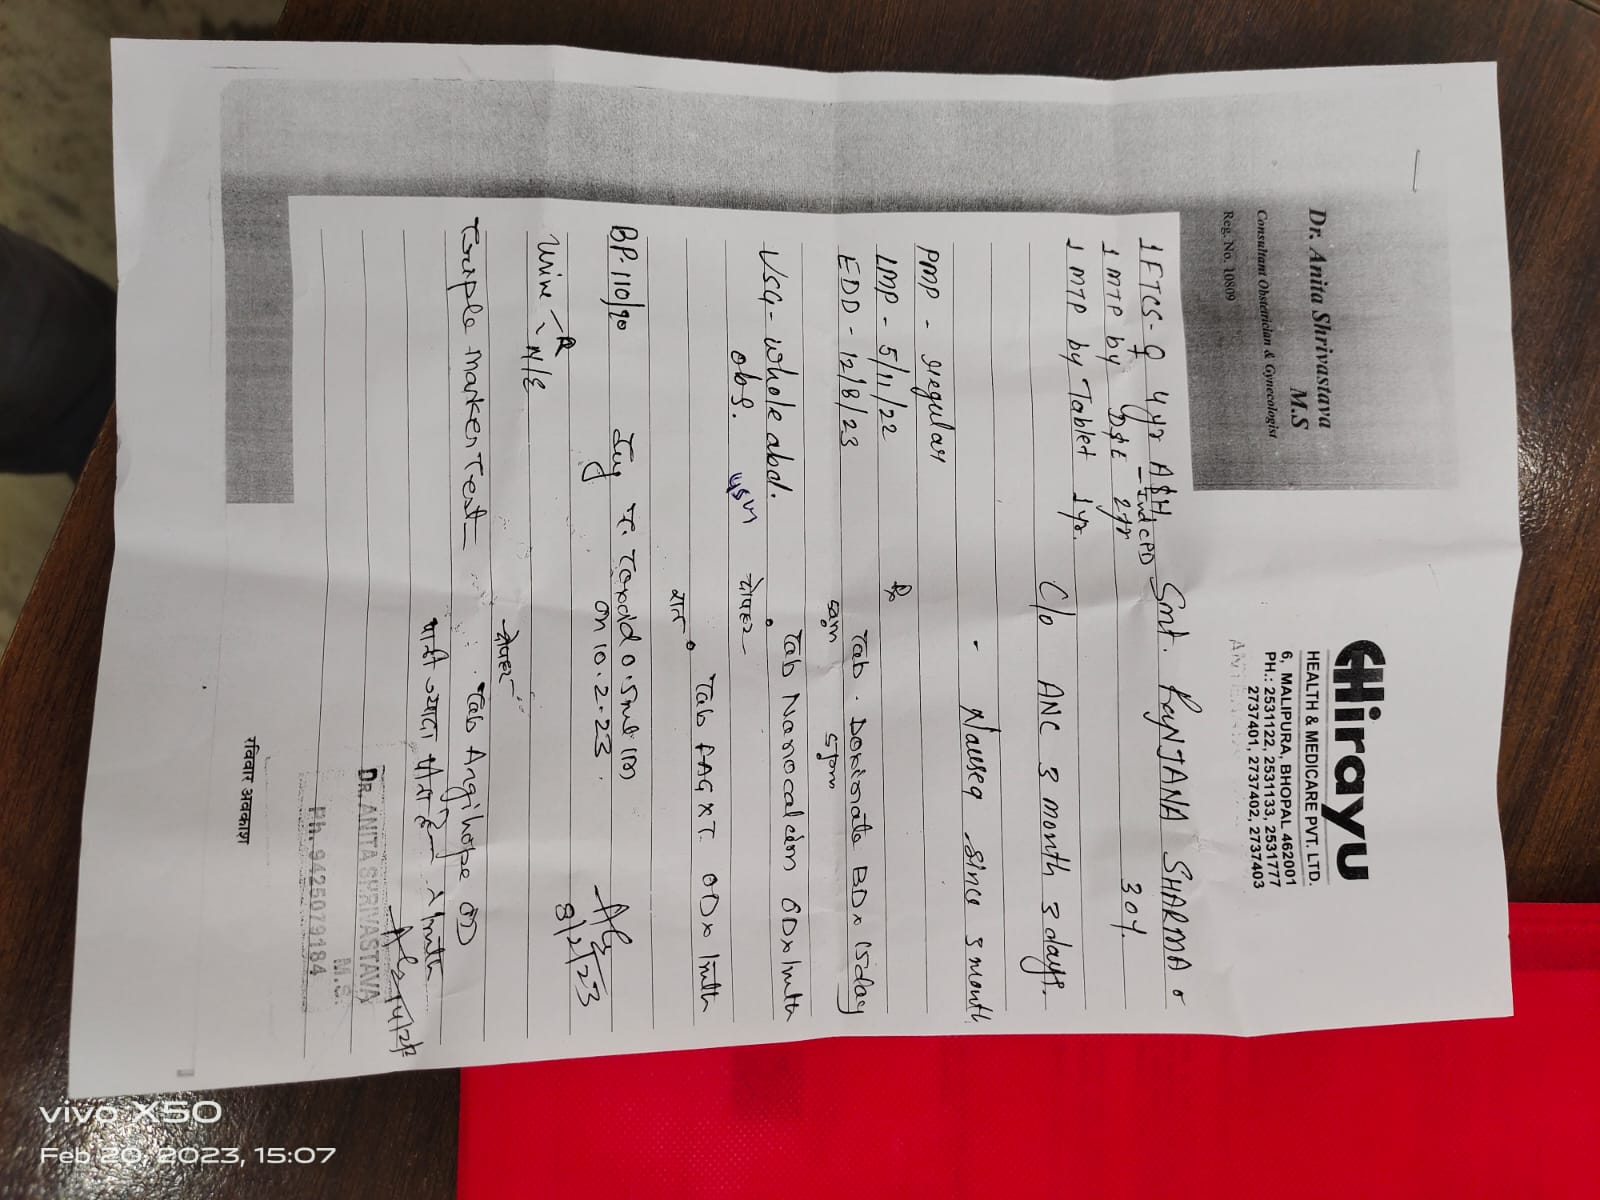 Dr. Anita Shrivastava
M.S
Consultant Obstetrician & Gynecologist
Reg. No. 10809
Hirayu
HEALTH & MEDICARE PVT. LTD.
6, MALIPURA, BHOPAL 462001
PH.: 2531122, 2531133, 2531777
2737401, 2737402, 2737403
Smt. RANJANA SHARMA
30y.
1 FTCS - ♀ 4yr A&H
Ind CPD
1 MTP by D&E 2yr
1 MTP by Tablet 1yr.
C/o ANC 3 month 3 days.
- Nausea since 3 month
PMP - regular
LMP - 5/11/22
EDD - 12/8/23
Tab. Doxinate BD x 15day
5am 5pm
USG - whole abd.
obs.
Tab Nanocal OD x 1mth
दोपहर
Tab FAG XT. OD x 1mth
रात
BP. 110/90
Inj T. Toxoid 0.5ml IM
on 10.2.23.
8/2/23
Urine R
M/E
Triple marker Test
Tab Angihope OD
दोपहर
x 1mth
14/2/23
DR. ANITA SHRIVASTAVA
M.S.
Ph. 9425079184
रविवार अवकाश
vivo X50
Feb 20, 2023, 15:07